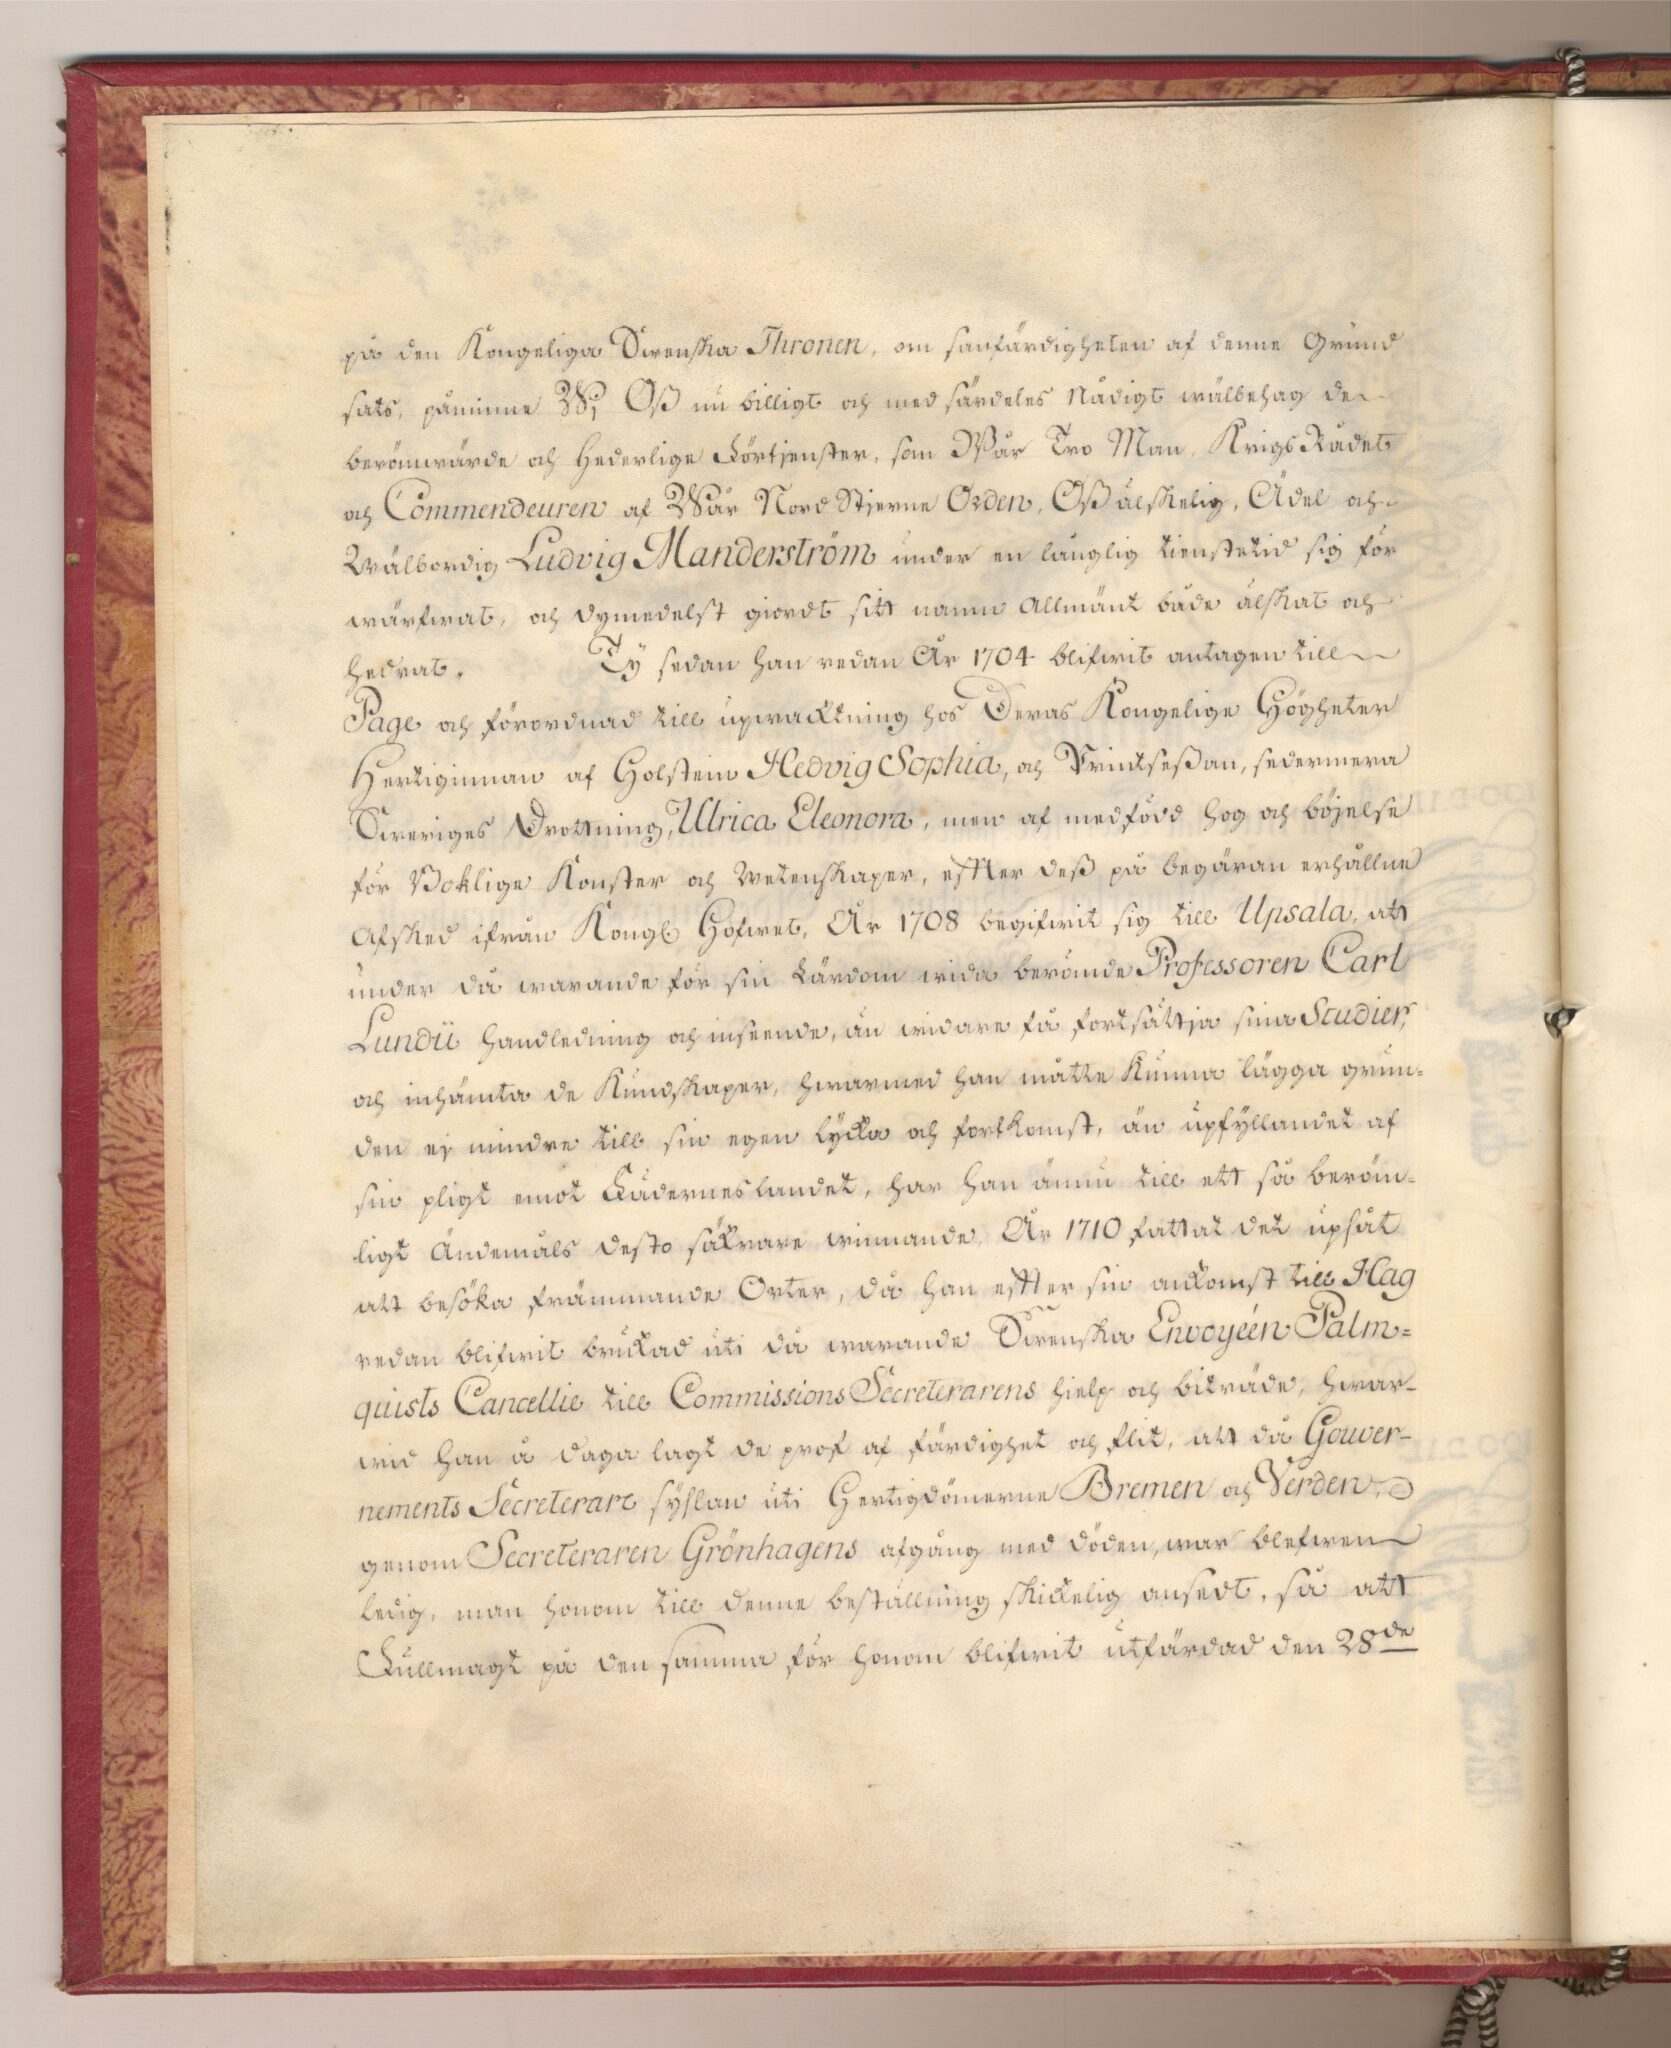 på den Kongeliga Swenska Thronen, om sanfärdigheten af denne Grund
sats, påminne Wi Oß nu billigt och med särdeles Nådigt wälbehag de
berömwärde och Hederlige Förtjenster, som Wår Tro Man, KrigsRådet
och Commendeuren af Wår Nord Stjerne Orden, Oß älskelig, Ädel och
Wälbordig Ludvig Manderström under en långlig tienstetid sig för
wärfwat, och dymedelst giordt sitt namn Allmänt både älskat och
hedrat. Ty sedan han redan År 1704 blifwit antagen till
Page och förordnad till upwacktning hos Deras Kongelige Högheter
Hertiginnan af Holstein Hedvig Sophia, och Printseßan, sedermera
Sweriges Drottning, Ulrica Eleonora, men af medfödd hog och böjelse
för Boklige Konster och Wetenskaper, effter deß på begäran erhållne
Afsked ifrån Kongl Hofwet, År 1708 begifwit sig till Upsala, att
under då warande för sin Lärdom wida berömde Professoren Carl
Lundii handledning och inseende, än widare få fortsättja sina Studier,
och inhämta de Kundskaper, hwarmed han måtte kunna lägga grun=
den ej mindre till sin egen lycka och fortkomst, än upfyllandet af
sin pligt emot Fäderneslandet, har han ännu till ett så beröm-
ligt Ändemåls desto säkrare winnande, År 1710 fattat det upsåt
att besöka främmande Orter, då han effter sin ankomst till Hag
redan blifwit brukad uti då warande Swenska Envoyéen Palm=
quists Cancellie till Commissions Secreterarens hielp och biträde, hwar-
wid han å daga lagt de prof af färdighet och flit, att då Gouver-
nements Secreterare syslan uti Hertigdömerne Bremen och Verden,
genom Secreteraren Grönhagens afgång med döden, war blefwen
ledig, man honom till denne beställning skickelig ansedt, så att
Fullmagt på den samma för honom blifwit utfärdad den 28de